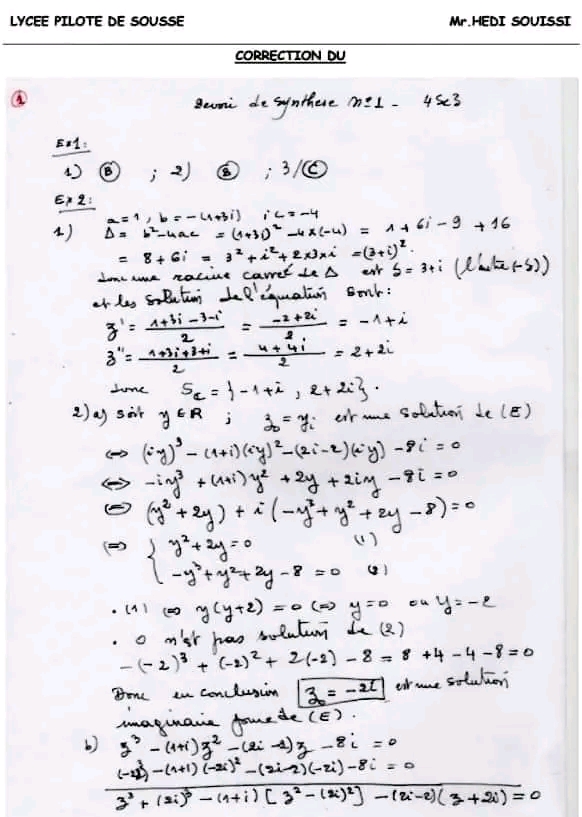 LYCEE PILOTE DE SOUSSE Mr.HEDI SOUISSI
CORRECTION DU
1
Devoir de synthese N°1 - 4Sc3
Ex1:
1) B ; 2) B ; 3/ C
Ex 2:
a=1, b=-(1+3i) ; c=-4
1) Δ = b²-4ac = (1+3i)² - 4x(-4) = 1+6i-9+16
= 8+6i = 3²+i²+2x3xi = (3+i)².
donc une racine carrée de Δ est δ = 3+i (l'autre (-δ))
et les solution de l'équation sont:
z' = (1+3i-3-i)/2 = (-2+2i)/2 = -1+i
z'' = (1+3i+3+i)/2 = (4+4i)/2 = 2+2i
donc S_C = {-1+i, 2+2i}.
2) a) soit y ∈ R ; z₀ = yi est une solution de (E)
⇔ (iy)³ - (1+i)(iy)² - (2i-2)(iy) - 8i = 0
⇔ -iy³ + (1+i)y² + 2y + 2iy - 8i = 0
⇔ (y²+2y) + i(-y³+y²+2y-8) = 0
⇔ { y²+2y = 0 (1)
-y³+y²+2y-8 = 0 (2)
. (1) ⇔ y(y+2) = 0 ⇔ y=0 ou y=-2
. 0 n'est pas solution de (2)
-(-2)³ + (-2)² + 2(-2) - 8 = 8+4-4-8=0
Donc en conclusion z₀ = -2i est une solution
imaginaire pure de (E).
b) z³ - (1+i)z² - (2i-2)z - 8i = 0
(-2i)³ - (1+i)(-2i)² - (2i-2)(-2i) - 8i = 0
z³ + (2i)³ - (1+i)[z² - (2i)²] - (2i-2)(z+2i) = 0